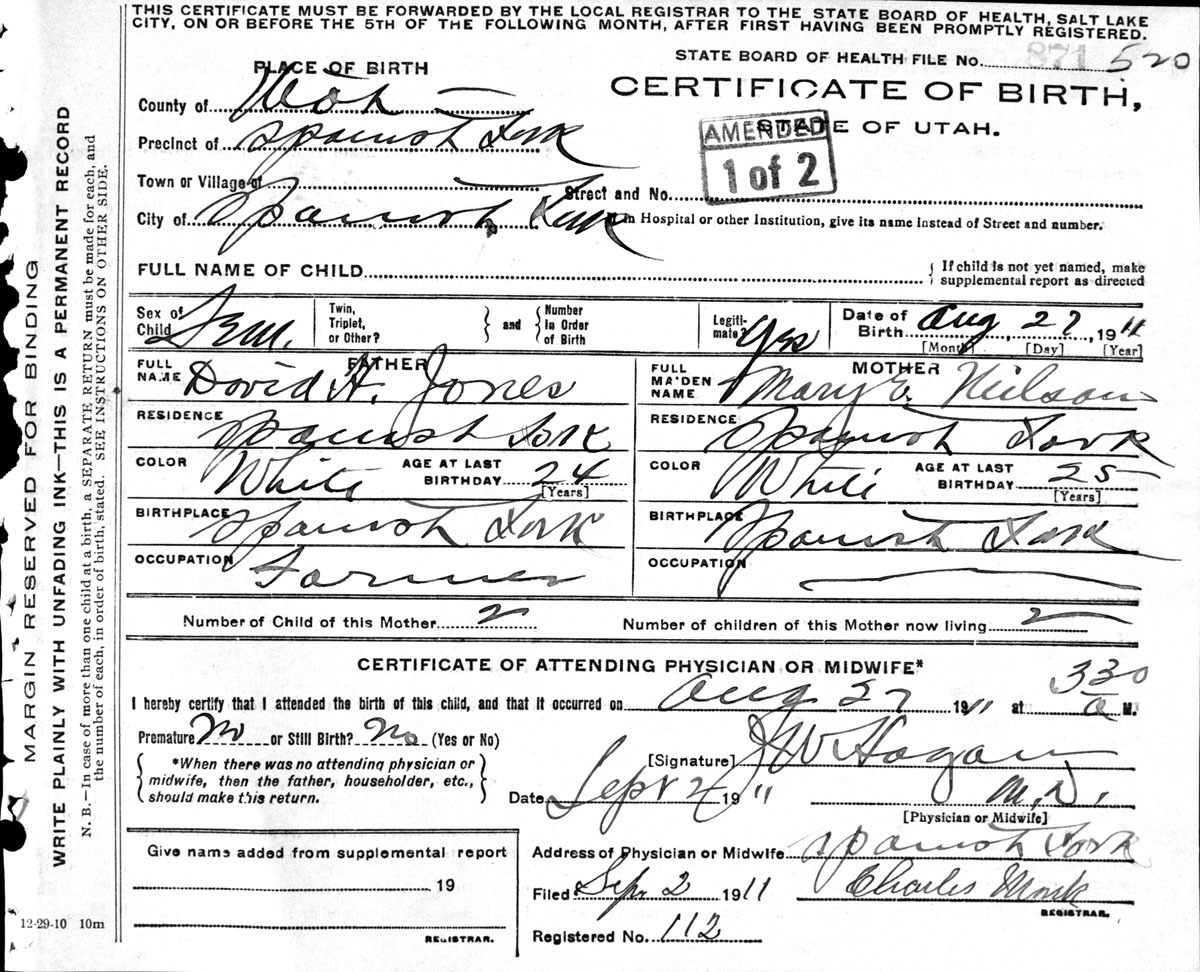 THIS CERTIFICATE MUST BE FORWARDED BY THE LOCAL REGISTRAR TO THE STATE BOARD OF HEALTH, SALT LAKE
CITY, ON OR BEFORE THE 5TH OF THE FOLLOWING MONTH, AFTER FIRST HAVING BEEN PROMPTLY REGISTERED.
STATE BOARD OF HEALTH FILE No. 871 520
PLACE OF BIRTH
CERTIFICATE OF BIRTH,
STATE OF UTAH.
AMENDED
1 of 2
County of Utah
Precinct of Spanish Fork
Town or Village of
Street and No.
City of Spanish Fork
If in Hospital or other Institution, give its name instead of Street and number.
FULL NAME OF CHILD
If child is not yet named, make
supplemental report as directed
Sex of Child Fem.
Twin, Triplet, or Other?
and
Number in Order of Birth
Legiti-mate? Yes
Date of Birth Aug 27, 1911
[Month] [Day] [Year]
FATHER
FULL NAME David A. Jones
RESIDENCE Spanish Fork
COLOR White AGE AT LAST BIRTHDAY 24
[Years]
BIRTHPLACE Spanish Fork
OCCUPATION Farmer
MOTHER
FULL MAIDEN NAME Mary E. Neilson
RESIDENCE Spanish Fork
COLOR White AGE AT LAST BIRTHDAY 25
[Years]
BIRTHPLACE Spanish Fork
OCCUPATION
Number of Child of this Mother 2 Number of children of this Mother now living 2
CERTIFICATE OF ATTENDING PHYSICIAN OR MIDWIFE*
I hereby certify that I attended the birth of this child, and that it occurred on Aug 27 1911 at 330 a M.
Premature No or Still Birth? No (Yes or No)
*When there was no attending physician or
midwife, then the father, householder, etc.,
should make this return.
[Signature] J W Hagan
Date Sept 2 1911 M.D.
[Physician or Midwife]
Give name added from supplemental report
19
REGISTRAR.
Address of Physician or Midwife Spanish Fork
Filed Sep. 2 1911 Charles Monk
REGISTRAR.
Registered No. 112
MARGIN RESERVED FOR BINDING
WRITE PLAINLY WITH UNFADING INK—THIS IS A PERMANENT RECORD
N. B.—In case of more than one child at a birth, a SEPARATE RETURN must be made for each, and
the number of each, in order of birth, stated. SEE INSTRUCTIONS ON OTHER SIDE.
12-29-10 10m